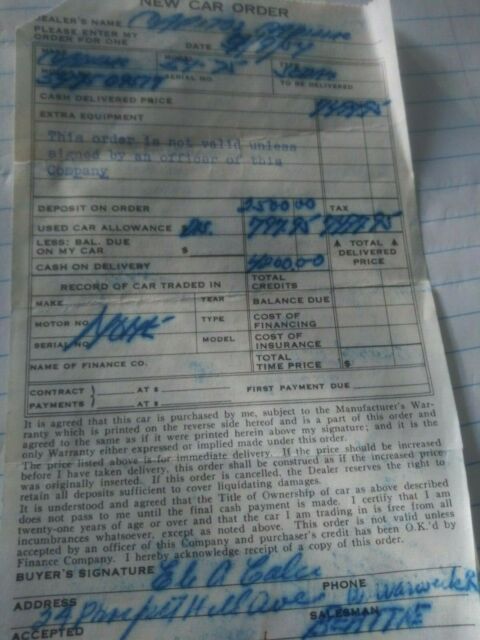 NEW CAR ORDER
DEALER'S NAME
PLEASE ENTER MY
ORDER FOR ONE DATE
SERIAL NO. TO BE DELIVERED
CASH DELIVERED PRICE
EXTRA EQUIPMENT
This order is not valid unless
signed by an officer of this
Company
DEPOSIT ON ORDER 2500 00 TAX
USED CAR ALLOWANCE
LESS: BAL. DUE
ON MY CAR $ TOTAL DELIVERED PRICE
CASH ON DELIVERY
RECORD OF CAR TRADED IN TOTAL CREDITS
MAKE YEAR BALANCE DUE
MOTOR NO. TYPE COST OF FINANCING
SERIAL NO. None MODEL COST OF INSURANCE
NAME OF FINANCE CO. TOTAL TIME PRICE $
CONTRACT } AT $ FIRST PAYMENT DUE
PAYMENTS } AT $
It is agreed that this car is purchased by me, subject to the Manufacturer's War-
ranty which is printed on the reverse side hereof and is a part of this order and
agreed to the same as if it were printed herein above my signature; and it is the
only Warranty either expressed or implied made under this order.
The price listed above is for immediate delivery. If the price should be increased
before I have taken delivery, this order shall be construed as if the increased price
was originally inserted. If this order is cancelled, the Dealer reserves the right to
retain all deposits sufficient to cover liquidating damages.
It is understood and agreed that the Title of Ownership of car as above described
does not pass to me until the final cash payment is made. I certify that I am
twenty-one years of age or over and that the car I am trading in is free from all
incumbrances whatsoever, except as noted above. This order is not valid unless
accepted by an officer of this Company and purchaser's credit has been O.K.'d by
Finance Company. I hereby acknowledge receipt of a copy of this order.
BUYER'S SIGNATURE
PHONE
ADDRESS 24 Prospect Hill Ave. W. Warwick R
ACCEPTED SALESMAN